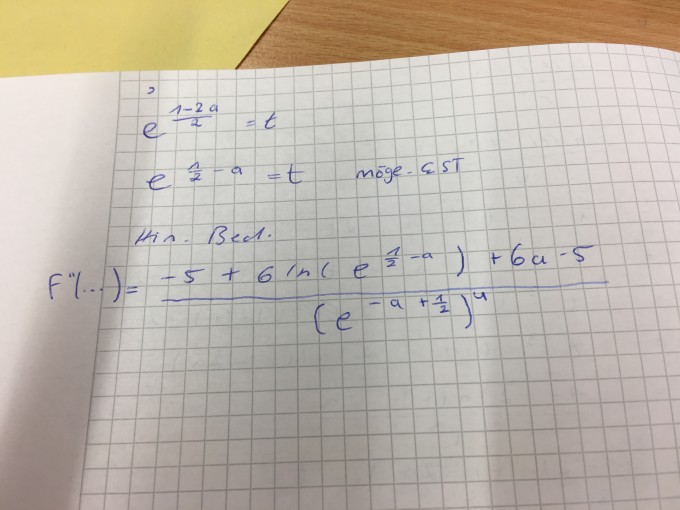 e^{\frac{1-2a}{2}} = t
e^{\frac{1}{2}-a} = t möge. EST
Hin. Bed.
F''(...) = \frac{-5 + 6 ln( e^{\frac{1}{2}-a} ) + 6a - 5}{(e^{-a+\frac{1}{2}})^4}